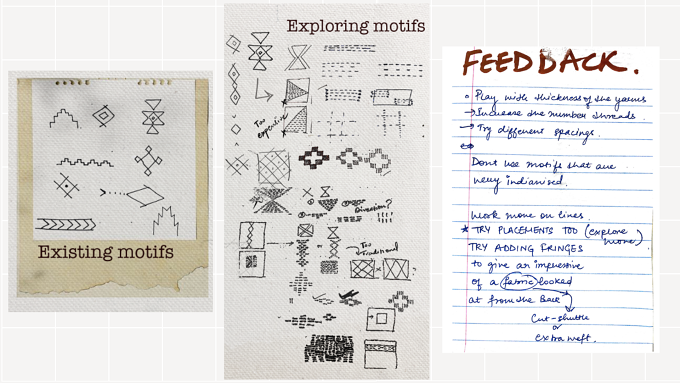 Existing motifs
Exploring motifs
Too
expensive
Direction?
Too
Traditional
FEEDBACK.
Play with thickness of the yarns
→ Increase the number threads.
→ Try different spacings.
Dont use motifs that are
very indianised.
Work more on lines.
★ TRY PLACEMENTS TOO (explore
more)
TRY ADDING FRINGES
to give an impressive
of a fabric looked
at from the back
Cut-shuttle
or
extra weft.